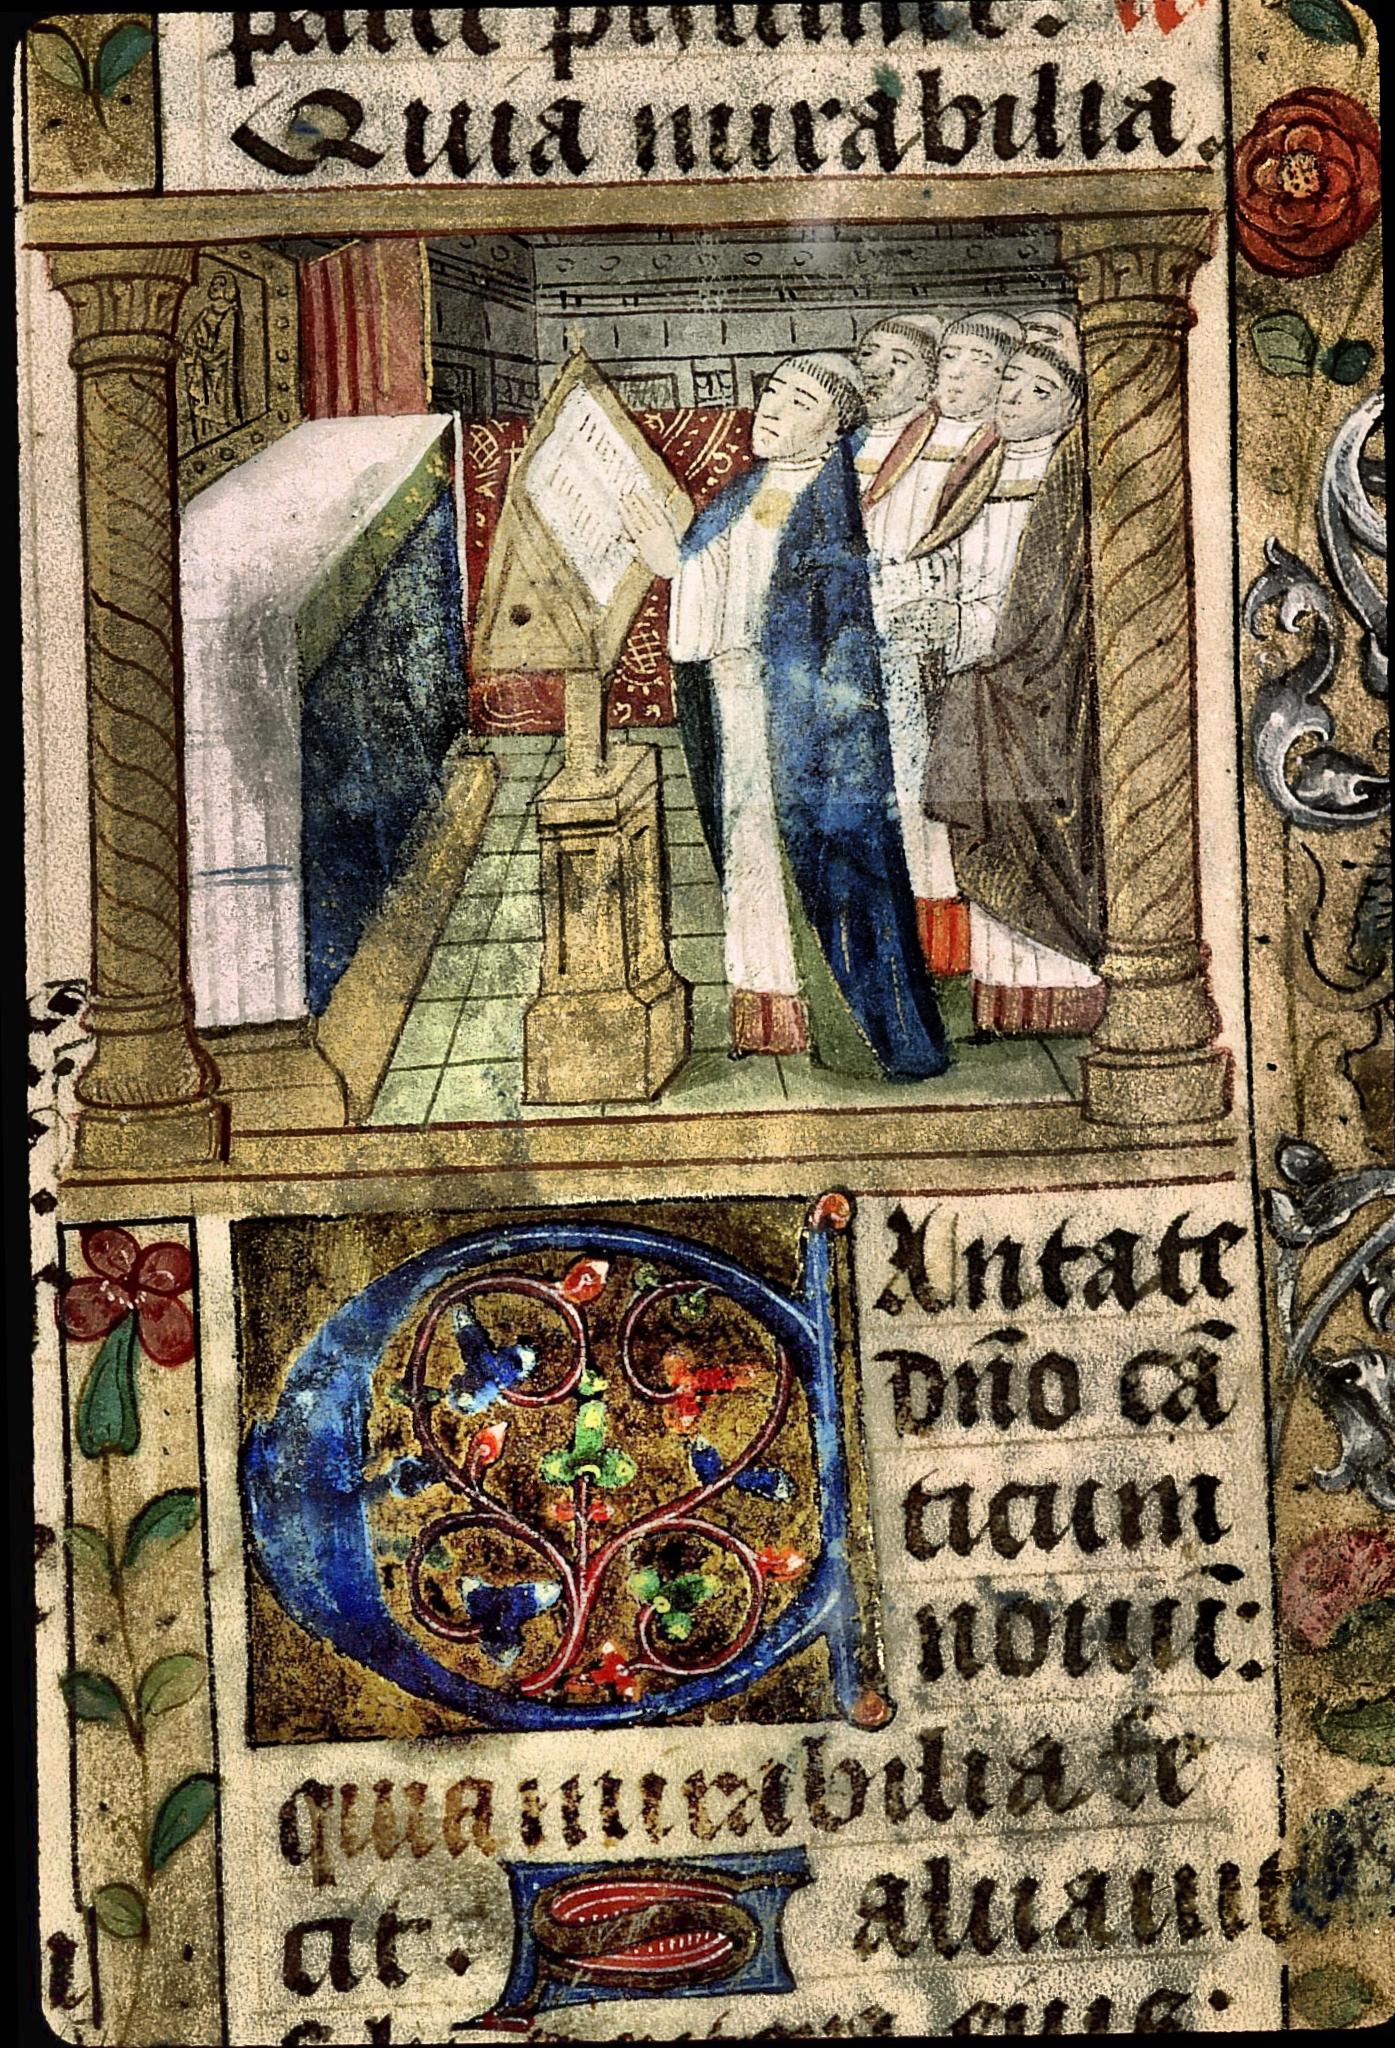 Quia mirabilia.
CAntate
dño cā
ticum
nouū:
quia mirabilia fe
cit. Saluauit